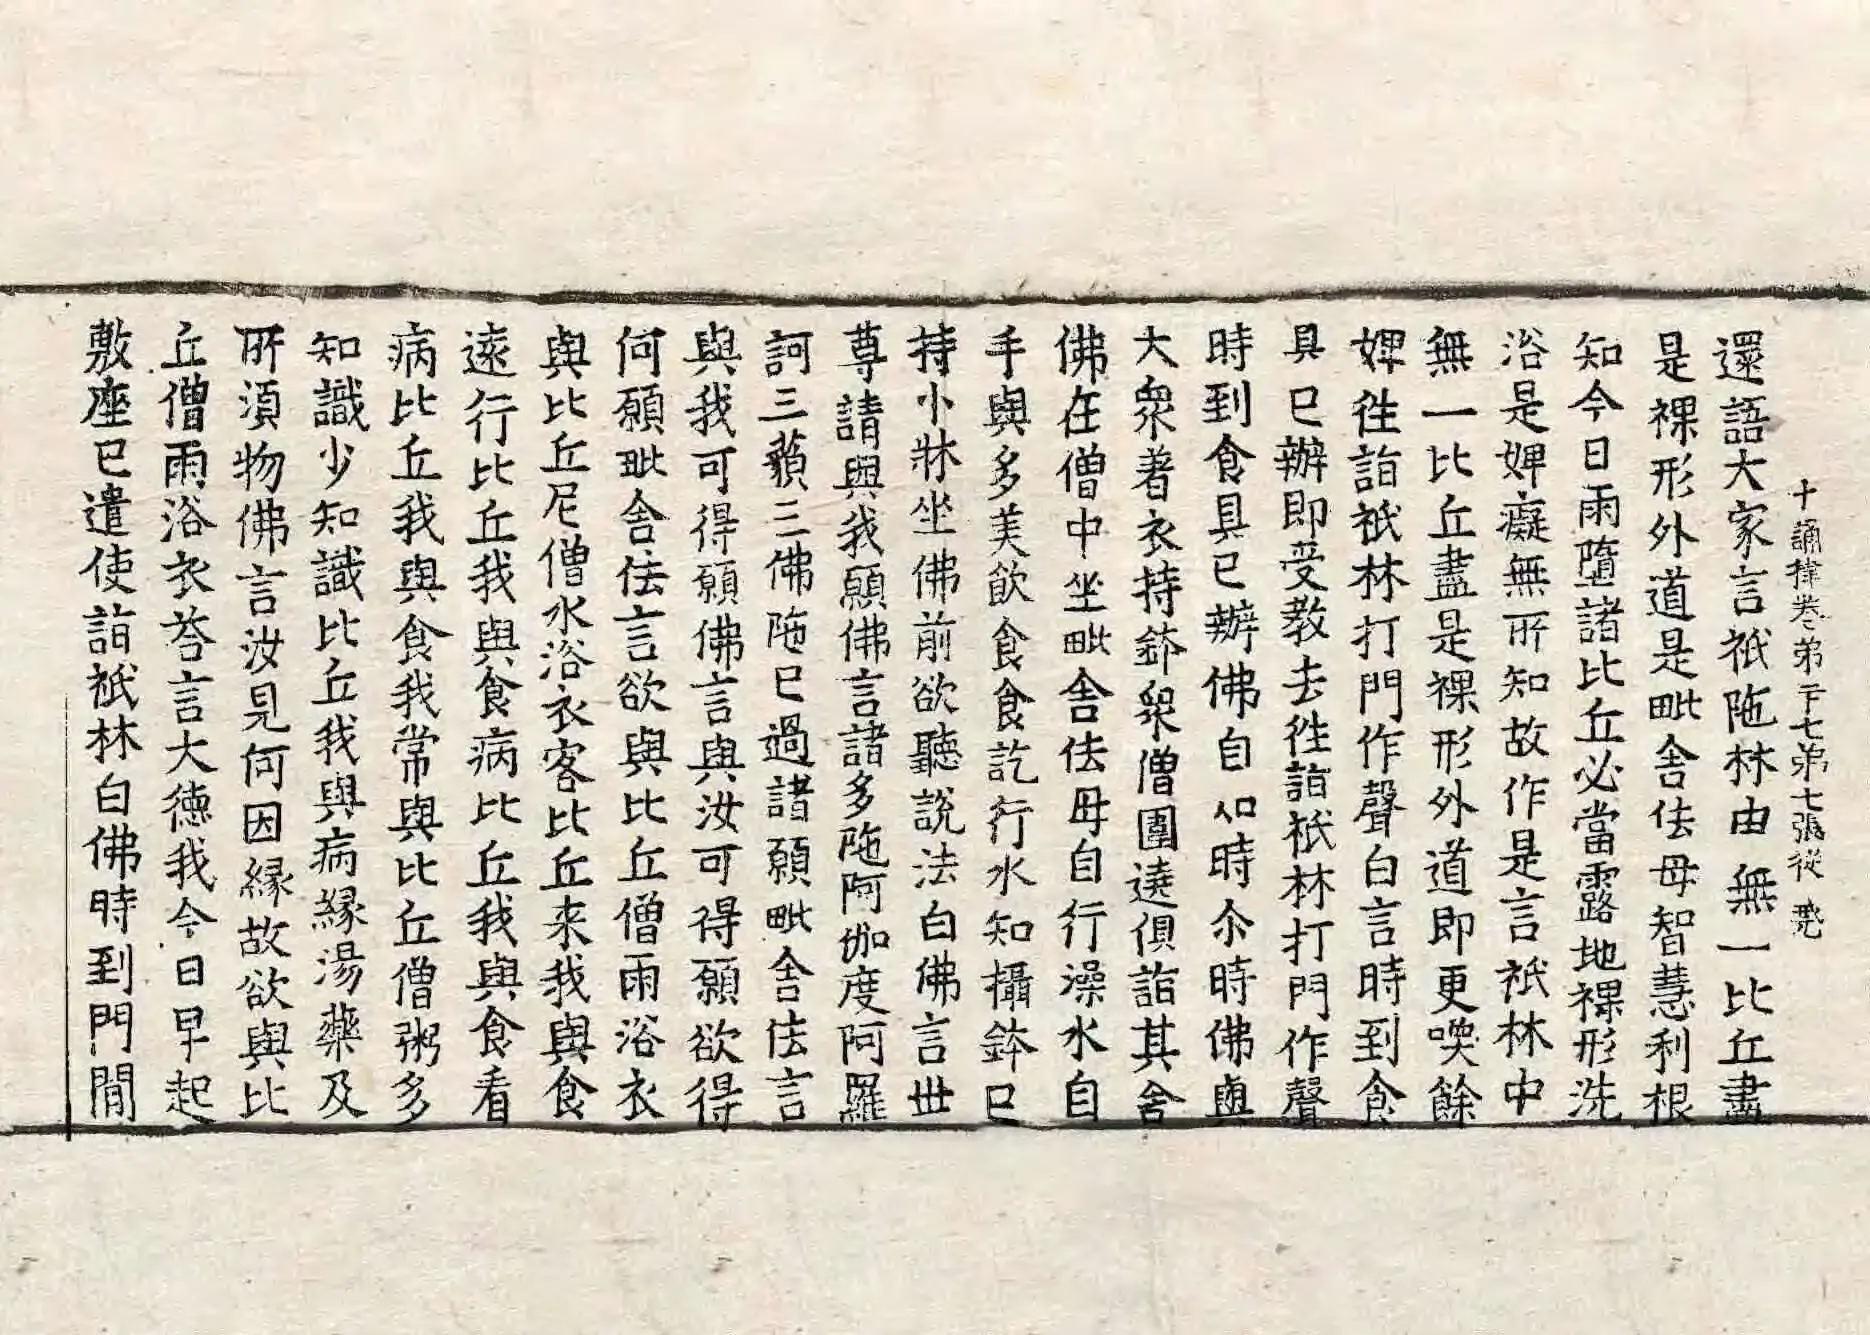 十誦律卷弟二十七弟七張從
還語大家言祇陁林由無一比丘盡
是裸形外道是毗舍佉母智慧利根
知今日雨墮諸比丘必當露地裸形洗
浴是婢癡無所知故作是言祇林中
無一比丘盡是裸形外道即更喚餘
婢徃詣祇林打門作聲白言時到食
具已辦即受教去徃詣祇林打門作聲
時到食具已辦佛自知時尒時佛與
大衆著衣持鉢衆僧圍遶俱詣其舍
佛在僧中坐毗舍佉母自行澡水自
手與多美飲食食訖行水知攝鉢已
持小牀坐佛前欲聽說法白佛言世
尊請與我願佛言諸多陁阿伽度阿羅
訶三藐三佛陁已過諸願毗舍佉言
與我可得願佛言與汝可得願欲得
何願毗舍佉言欲與比丘僧雨浴衣
與比丘尼僧水浴衣客比丘来我與食
遠行比丘我與食病比丘我與食看
病比丘我與食我常與比丘僧粥多
知識少知識比丘我與病緣湯藥及
所須物佛言汝見何因緣故欲與比
丘僧雨浴衣荅言大德我今日早起
敷座已遣使詣祇林白佛時到門閒